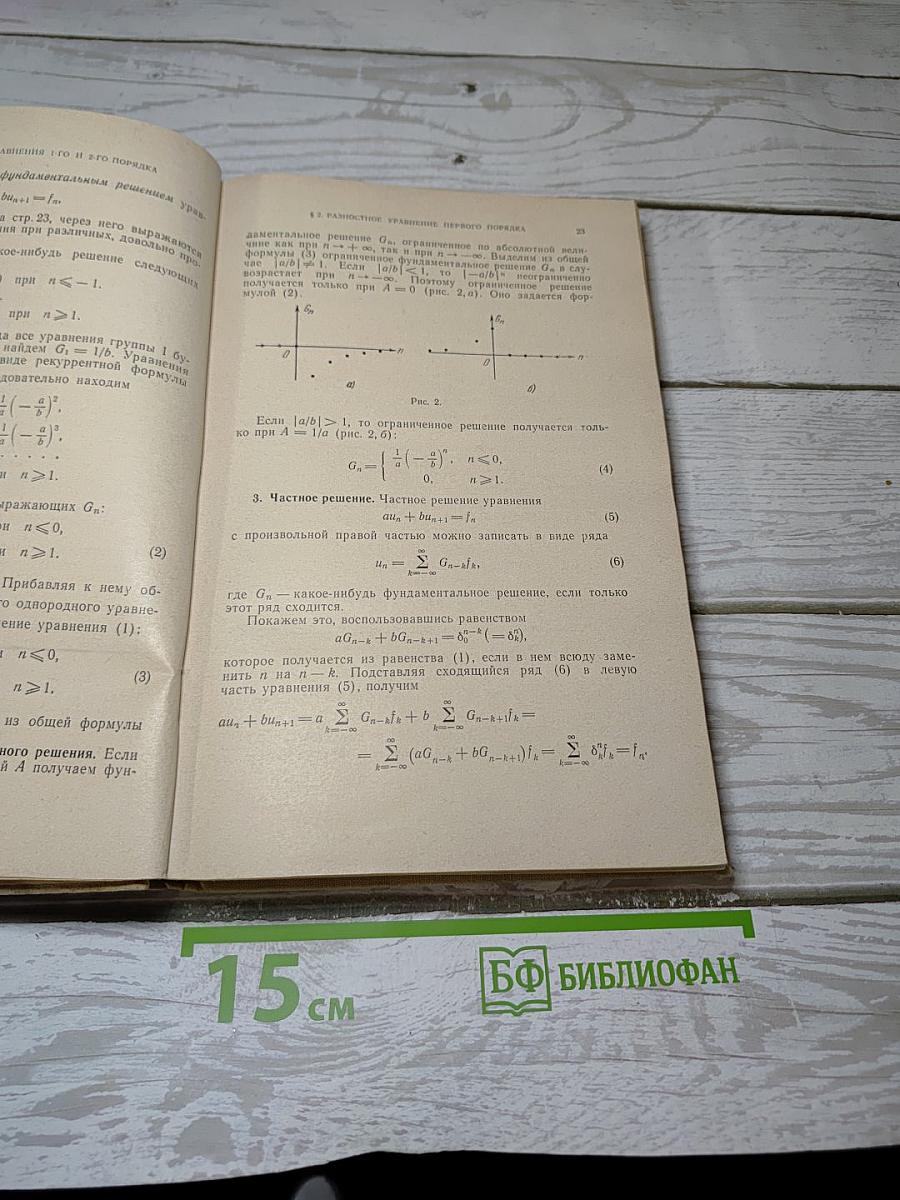 АВНЕНИЯ 1-ГО И 2-ГО ПОРЯДКА
фундаментальным решением урав-
bu_{n+1} = f_n,
а стр. 23, через него выражаются
ния при различных, довольно про-
кое-нибудь решение следующих
) при n ⩽ — 1.
при n ⩾ 1.
да все уравнения группы 1 бу-
найдем G_1 = 1/b. Уравнения
виде рекуррентной формулы
довательно находим
\frac{1}{a}(—\frac{a}{b})^2,
\frac{1}{a}(—\frac{a}{b})^3,
. . . . .
и n ⩾ 1.
ыражающих G_n:
ри n ⩽ 0,
и n ⩾ 1. (2)
Прибавляя к нему об-
го однородного уравне-
ение уравнения (1):
и n ⩽ 0,
n ⩾ 1. (3)
из общей формулы
ного решения. Если
й A получаем фун-
§ 2. РАЗНОСТНОЕ УРАВНЕНИЕ ПЕРВОГО ПОРЯДКА 23
даментальное решение G_n, ограниченное по абсолютной вели-
чине как при n → + ∞, так и при n → — ∞. Выделим из общей
формулы (3) ограниченное фундаментальное решение G_n в слу-
чае |a/b| ≠ 1. Если |a/b| < 1, то [—a/b]^n неограниченно
возрастает при n → — ∞. Поэтому ограниченное решение
получается только при A = 0 (рис. 2, а). Оно задается фор-
мулой (2).
G_n
0
n
а)
G_n
0
n
б)
Рис. 2.
Если |a/b| > 1, то ограниченное решение получается толь-
ко при A = 1/a (рис. 2, б):
G_n = { \frac{1}{a}(—\frac{a}{b})^n, n ⩽ 0,
0, n ⩾ 1. (4)
3. Частное решение. Частное решение уравнения
au_n + bu_{n+1} = f_n (5)
с произвольной правой частью можно записать в виде ряда
u_n = \sum_{k=-∞}^{∞} G_{n-k}f_k, (6)
где G_n — какое-нибудь фундаментальное решение, если только
этот ряд сходится.
Покажем это, воспользовавшись равенством
aG_{n-k} + bG_{n-k+1} = δ_0^{n-k} (= δ_k^n),
которое получается из равенства (1), если в нем всюду заме-
нить n на n — k. Подставляя сходящийся ряд (6) в левую
часть уравнения (5), получим
au_n + bu_{n+1} = a \sum_{k=-∞}^{∞} G_{n-k}f_k + b \sum_{k=-∞}^{∞} G_{n-k+1}f_k =
= \sum_{k=-∞}^{∞} (aG_{n-k} + bG_{n-k+1}) f_k = \sum_{k=-∞}^{∞} δ_k^n f_k = f_n.
15 см
БФ БИБЛИОФАН